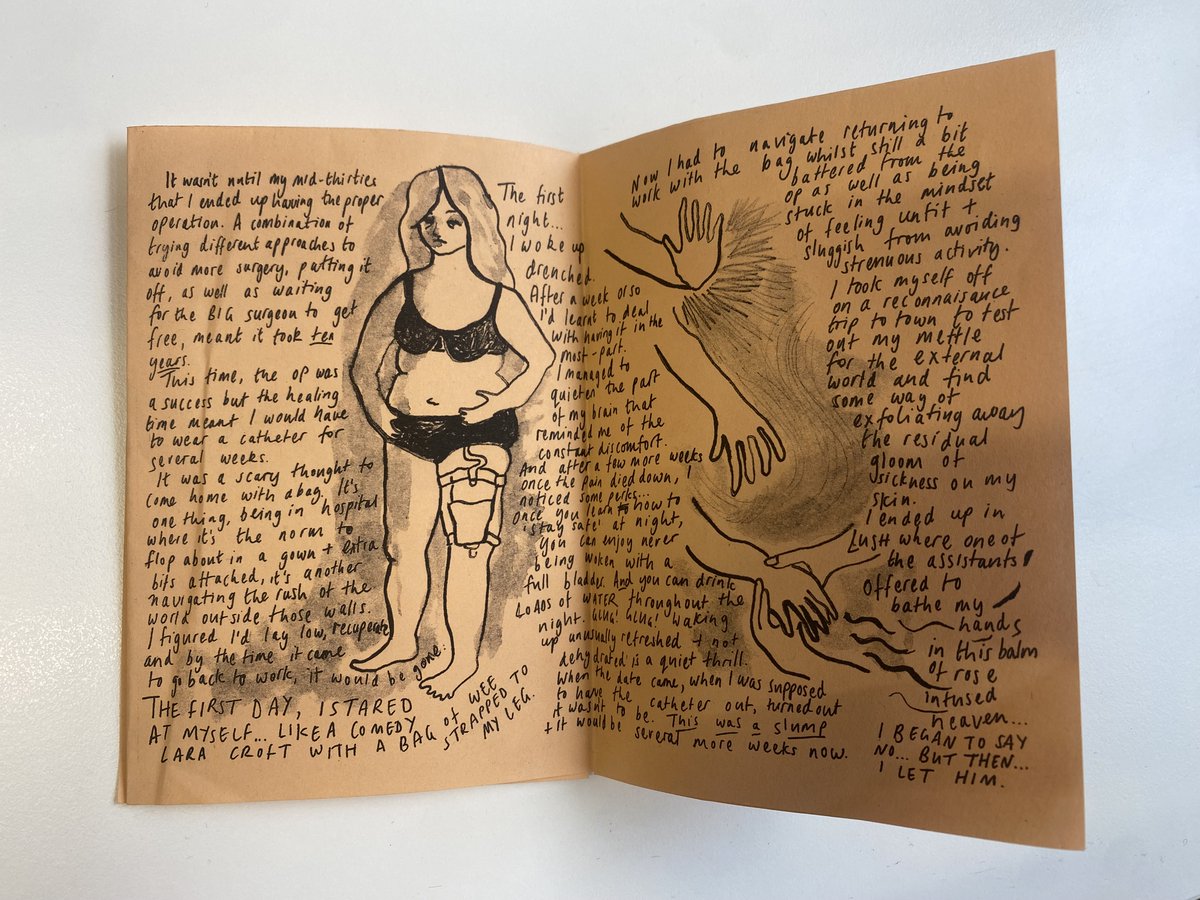 It wasn't until my mid-thirties
that I ended up having the proper
operation. A combination of
trying different approaches to
avoid more surgery, putting it
off, as well as waiting
for the BIG surgeon to get
free, meant it took ten
years.
This time, the op was
a success but the healing
time meant I would have
to wear a catheter for
several weeks.
It was a scary thought to
come home with a bag. It's
one thing, being in hospital
where it's the norm to
flop about in a gown + extra
bits attached, it's another
navigating the rush of the
world outside those walls.
I figured I'd lay low, recuperate
and by the time it came
to go back to work, it would be gone.
THE FIRST DAY, I STARED
AT MYSELF... LIKE A COMEDY
LARA CROFT WITH A BAG OF WEE
STRAPPED TO
MY LEG.
The first
night...
I woke up
drenched.
After a week or so
I'd learnt to deal
with having it in the
most-part.
I managed to
quieten the part
of my brain that
reminded me of the
constant discomfort.
And after a few more weeks
once the pain died down, I
noticed some perks...
Once you learn how to
'stay safe' at night,
you can enjoy never
being woken with a
full bladder. And you can drink
LOADS of WATER throughout the
night. GLUG! GLUG! Waking
up unusually refreshed + not
dehydrated is a quiet thrill.
When the date came, when I was supposed
to have the catheter out, turned out
it wasn't to be. This was a slump
+ it would be several more weeks now.
Now I had to navigate returning to
work with the bag whilst still a bit
battered from the
op as well as being
stuck in the mindset
of feeling unfit +
sluggish from avoiding
strenuous activity.
I took myself off
on a reconnaisance
trip to town to test
out my mettle
for the external
world and find
some way of
exfoliating away
the residual
gloom of
sickness on my
skin.
I ended up in
LUSH where one of
the assistants
offered to
bathe my
hands
in this balm
of rose
infused
heaven...
I BEGAN TO SAY
NO... BUT THEN...
I LET HIM.